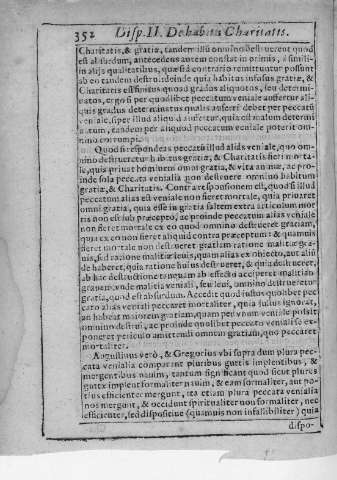 352 Disp. II. De habitu Charitatis.
Charitatis, & gratiæ, tandem illū omnino destruerent quod
est absurdum, antecedens autem constat in primis, a simili-
in alijs qualitatibus, quæ si à contrario remittuntur possunt
ab eo tandem destrui: deinde quia habitus infusus gratiæ, &
Charitatis est finitus quoad gradus aliquotos, seu determi-
natos, ergo si per quodlibet peccatum veniale aufertur ali-
quis gradus determinatus qualis auferri debet per peccatū
veniale, super illud aliud auferatur, quia est malum determi
natum, tandem per aliquod peccatum veniale poterit om-
nino corrumpi.
Quod si respondeas peccatū illud aliàs veniale, quo om-
nino destrueretur habitus gratiæ, & Charitatis fieri morta-
le, quia privat hominem omni gratia, & vita animæ, ac pro-
inde sola peccata venialia non destruere omnino habitum
gratiæ, & Charitatis. Contra: responsionem est, quod si illud
peccatum alias esset veniale non fieret mortale, quia privaret
omni gratia, quia esse in gratia saltem extra articulum mor
tis non est sub præcepto, ac proinde peccatum alias veniale
non fieret mortale ex eo quod omnino destrueret gratiam,
quia ex eo non fieret aliquid contra præceptum: & quamuis
fieret mortale non destrueret gratiam ratione malitiæ gra-
uis, sed ratione malitiæ leuis, quam alias ex obiecto, aut aliū
de haberet, quia ratione huius destrueret, & quia destrueret,
ab hac destructione tanquam ab effectu acciperet malitiam
grauem, vnde malitia venialis, seu leui, omnino destrueretur
gratia, quod est absurdum. Accedit quod iustus quolibet pec
cato alias veniali peccaret mortaliter, quia iustus ignorat,
an habeat maiorem gratiam, quam per vnum veniale possit
omnino destrui, ac proinde quolibet peccato veniali se ex-
poneret periculo amittendi omnem gratiam, quo peccaret
mortaliter.
Augustinus verò, & Gregorius vbi supra dum plura pec-
cata venialia comparant pluribus guttis implentibus, &
mergentibus nauim, tantum significant quod sicut plures
guttæ implent formaliter nauim, & eam formaliter, aut po-
tius efficienter mergunt, ita etiam plura peccata venialia
nos mergunt, & occidunt spiritualiter non formaliter, nec
efficienter, sed dispositiue (quamuis non infallibiliter) quia
dispo-